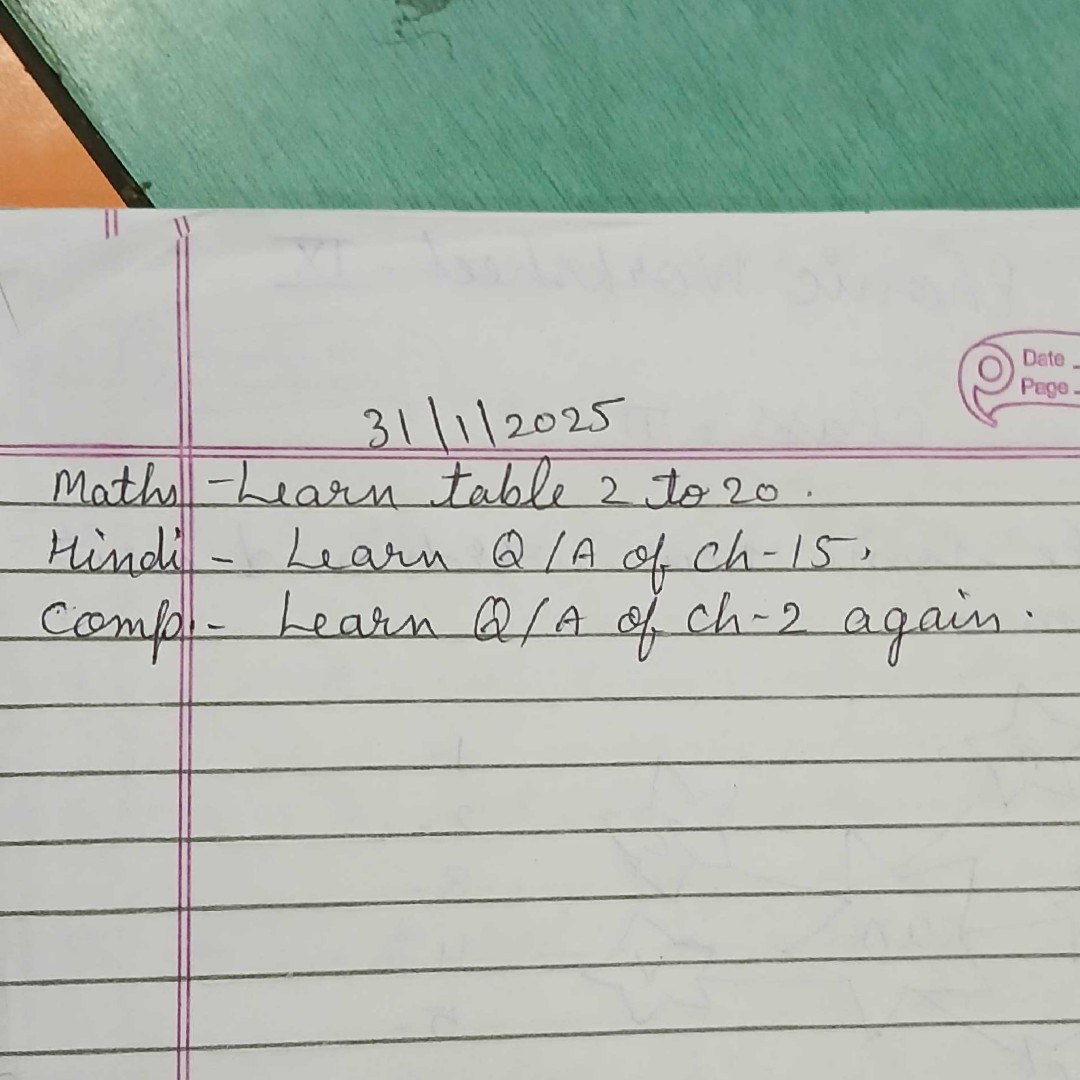 Date
Page
31/1/2025
Maths - Learn table 2 to 20.
Hindi - Learn Q/A of Ch-15,
Comp. - Learn Q/A of Ch-2 again.